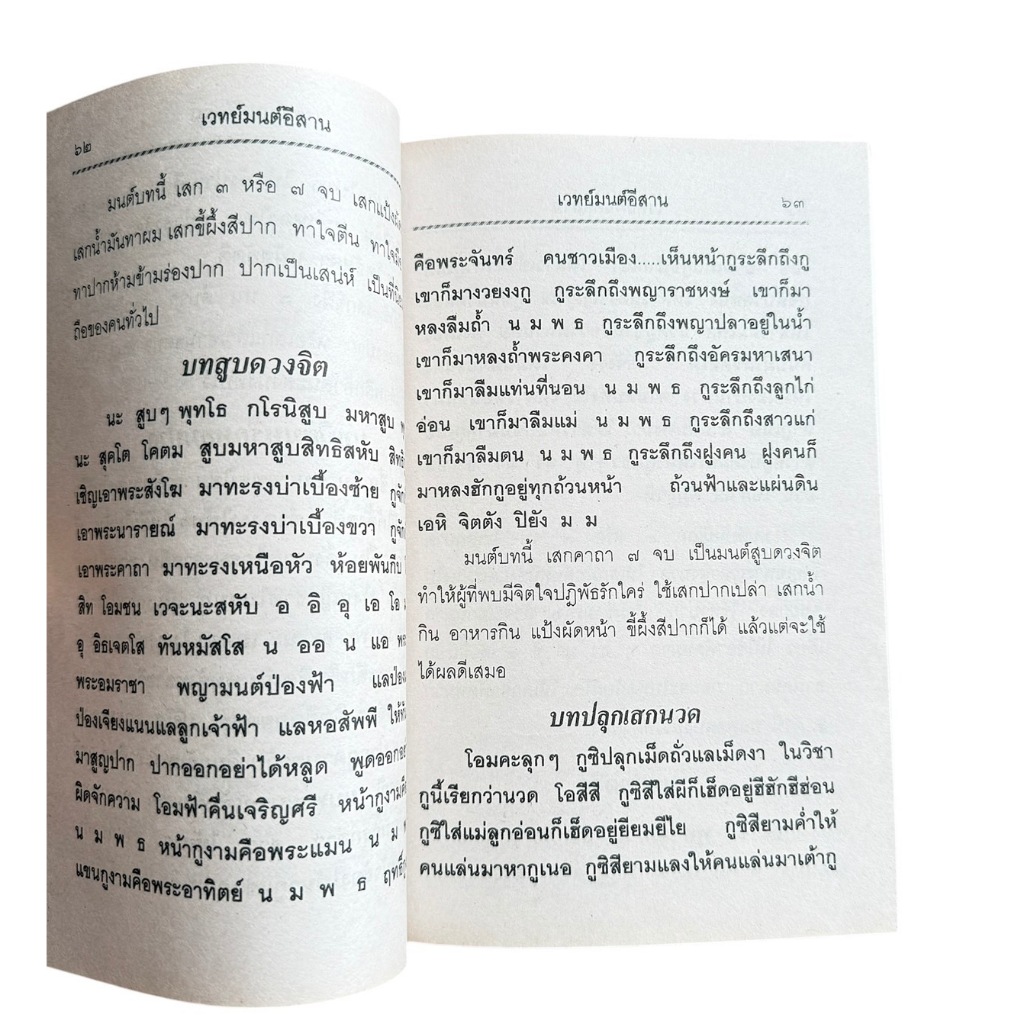 ๖๒
เวทย์มนต์อีสาน
มนต์บทนี้ เสก ๓ หรือ ๗ จบ เสกแป้ง
เสกน้ำมันทาผม เสกขี้ผึ้งสีปาก ทาใจตีน ทาใจ
ทาปากห้ามข้ามร่องปาก ปากเป็นเสน่ห์ เป็นที่
ถือของคนทั่วไป
บทสูบดวงจิต
นะ สูบๆ พุทโธ กโรนิสูบ มหาสูบ
นะ สุคโต โคตม สูบมหาสูบสิทธิสหับ
เชิญเอาพระสังโฆ มาทะรงบ่าเบื้องซ้าย
เอาพระนารายณ์ มาทะรงบ่าเบื้องขวา
เอาพระคาถา มาทะรงเหนือหัว ห้อยพันกีบ
สิท โอมชน เวจะนะสหับ อ อิ อุ เอ โอ
อุ อิธเจตโส ทันหมัสโส น ออ น แอ
พระอมราชา พญามนต์ป่องฟ้า แลป่อง
ป่องเจียงแนนแลลูกเจ้าฟ้า แลหอสัพพี ให้
มาสูญปาก ปากออกอย่าได้หลูด พูดออก
ผิดจักความ โอมฟ้าคื่นเจริญศรี หน้ากูงาม
น ม พ ธ หน้ากูงามคือพระแมน น ม
แขนกูงามคือพระอาทิตย์ น ม พ ธ
เวทย์มนต์อีสาน ๖๓
คือพระจันทร์ คนชาวเมือง.....เห็นหน้ากูระลึกถึงกู
เขาก็มางวยงงกู กูระลึกถึงพญาราชหงษ์ เขาก็มา
หลงลืมถ้ำ น ม พ ธ กูระลึกถึงพญาปลาอยู่ในน้ำ
เขาก็มาหลงถ้ำพระคงคา กูระลึกถึงอัครมหาเสนา
เขาก็มาลืมแท่นที่นอน น ม พ ธ กูระลึกถึงลูกไก่
อ่อน เขาก็มาลืมแม่ น ม พ ธ กูระลึกถึงสาวแก่
เขาก็มาลืมตน น ม พ ธ กูระลึกถึงฝูงคน ฝูงคนก็
มาหลงฮักกูอยู่ทุกถ้วนหน้า ถ้วนฟ้าและแผ่นดิน
เอหิ จิตตัง ปิยัง ม ม
มนต์บทนี้ เสกคาถา ๗ จบ เป็นมนต์สูบดวงจิต
ทำให้ผู้ที่พบมีจิตใจปฏิพัธรักใคร่ ใช้เสกปากเปล่า เสกน้ำ
กิน อาหารกิน แป้งผัดหน้า ขี้ผึ้งสีปากก็ได้ แล้วแต่จะใช้
ได้ผลดีเสมอ
บทปลุกเสกนวด
โอมคะลุกๆ กูซิปลุกเม็ดถั่วแลเม็ดงา ในวิชา
กูนี้เรียกว่านวด โอสีสี กูซิสีใส่ผีก็เฮ็ดอยู่ฮีฮักฮีฮ่อน
กูซิใส่แม่ลูกอ่อนก็เฮ็ดอยู่ยียมยีไย กูซิสียามค่ำให้
คนแล่นมาหากูเนอ กูซิสียามแลงให้คนแล่นมาเต้ากู